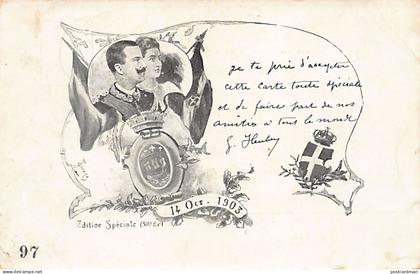 je te prie d'accepter
cette carte toute spéciale
et de faire part de nos
amitiés à tout le monde
G.
14 Oct. 1903
Edition Spéciale
97
postcardman